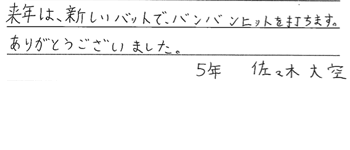 来年は、新しいバットで、バンバンヒットを打ちます。
ありがとうございました。
5年 佐々木大空